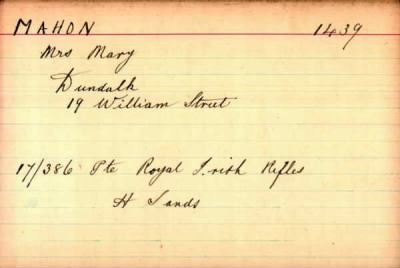 MAHON 1439
Mrs Mary
Dundalk
19 William Street
17/386 Pte Royal Irish Rifles
H Sands